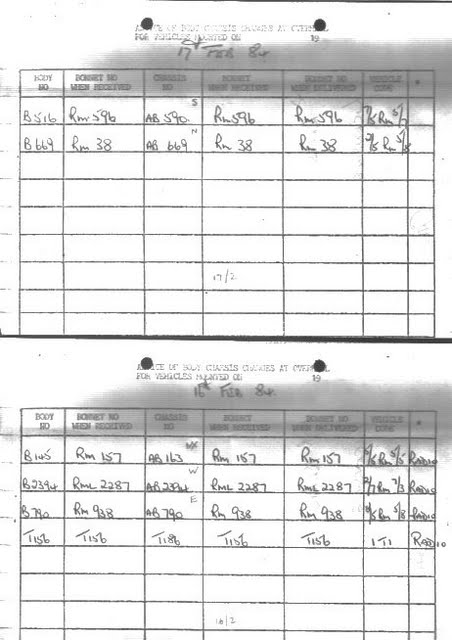 ADVICE OF BODY CHASSIS CHANGES AT OVERHAUL
FOR VEHICLES MOUNTED ON 19
17th FEB 84
BODY NO BONNET NO WHEN RECEIVED CHASSIS NO BONNET WHEN RECEIVED BONNET NO WHEN DELIVERED VEHICLE CODE *
B516 Rm 596 AB 590 S Rm 596 Rm 596 Rm
B 669 Rm 38 AB 669 N Rm 38 Rm 38 Rm
17/2
ADVICE OF BODY CHASSIS CHANGES AT OVERHAUL
FOR VEHICLES MOUNTED ON 19
16th FEB 84
BODY NO BONNET NO WHEN RECEIVED CHASSIS NO BONNET WHEN RECEIVED BONNET NO WHEN DELIVERED VEHICLE CODE *
B145 Rm 157 AB 163 Rm 157 Rm 157 Rm RADIO
B2394 RmL 2287 AB2394 W RmL 2287 RmL2287 2/7 Rm 7/3 RADIO
B790 Rm 938 AB 790 E Rm 938 Rm 938 Rm 5/8 RADIO
T156 T156 T186 T156 T156 1 T1 RADIO
16/2